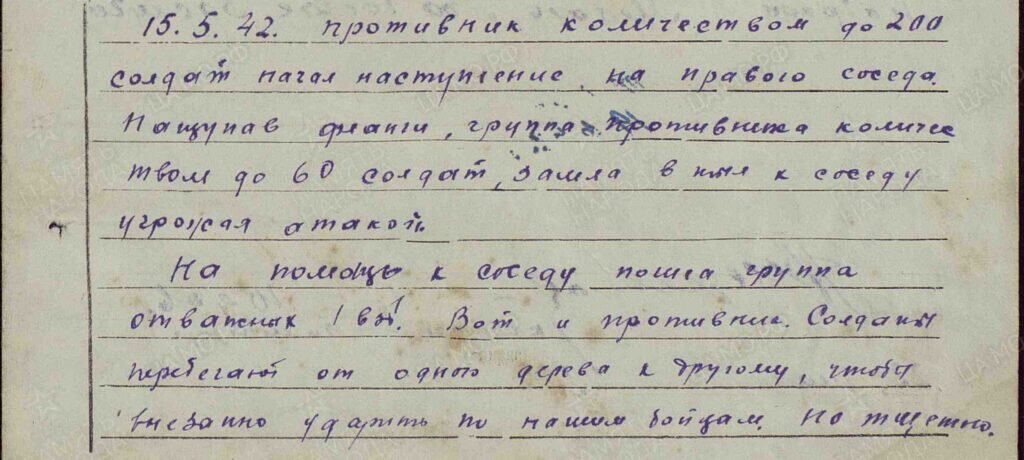 15.5.42. противник количеством до 200
солдат начал наступление на правого соседа.
Нащупав фланги, группа противника количес
твом до 60 солдат, зашла в тыл к соседу
угрожая атакой.
На помощь к соседу пошла группа
отважных 1 . Вот и противник. Солдаты
перебегают от одного дерева к другому, чтобы
внезапно ударить по нашим бойцам. Но тщетно.